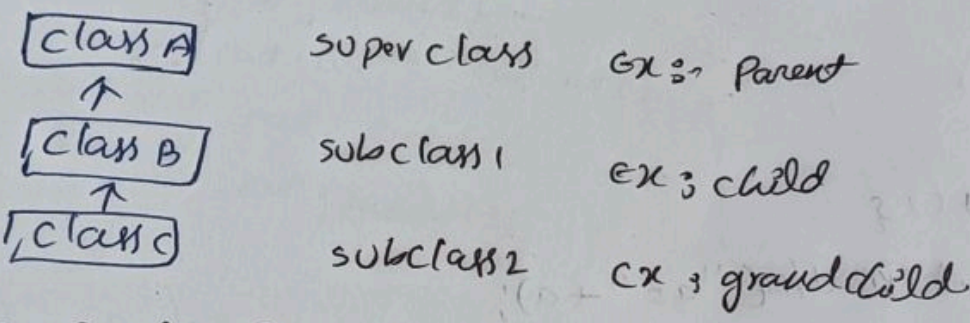 class A super class Ex:- Parent
class B subclass1 Ex: child
class C subclass2 Ex: grandchild